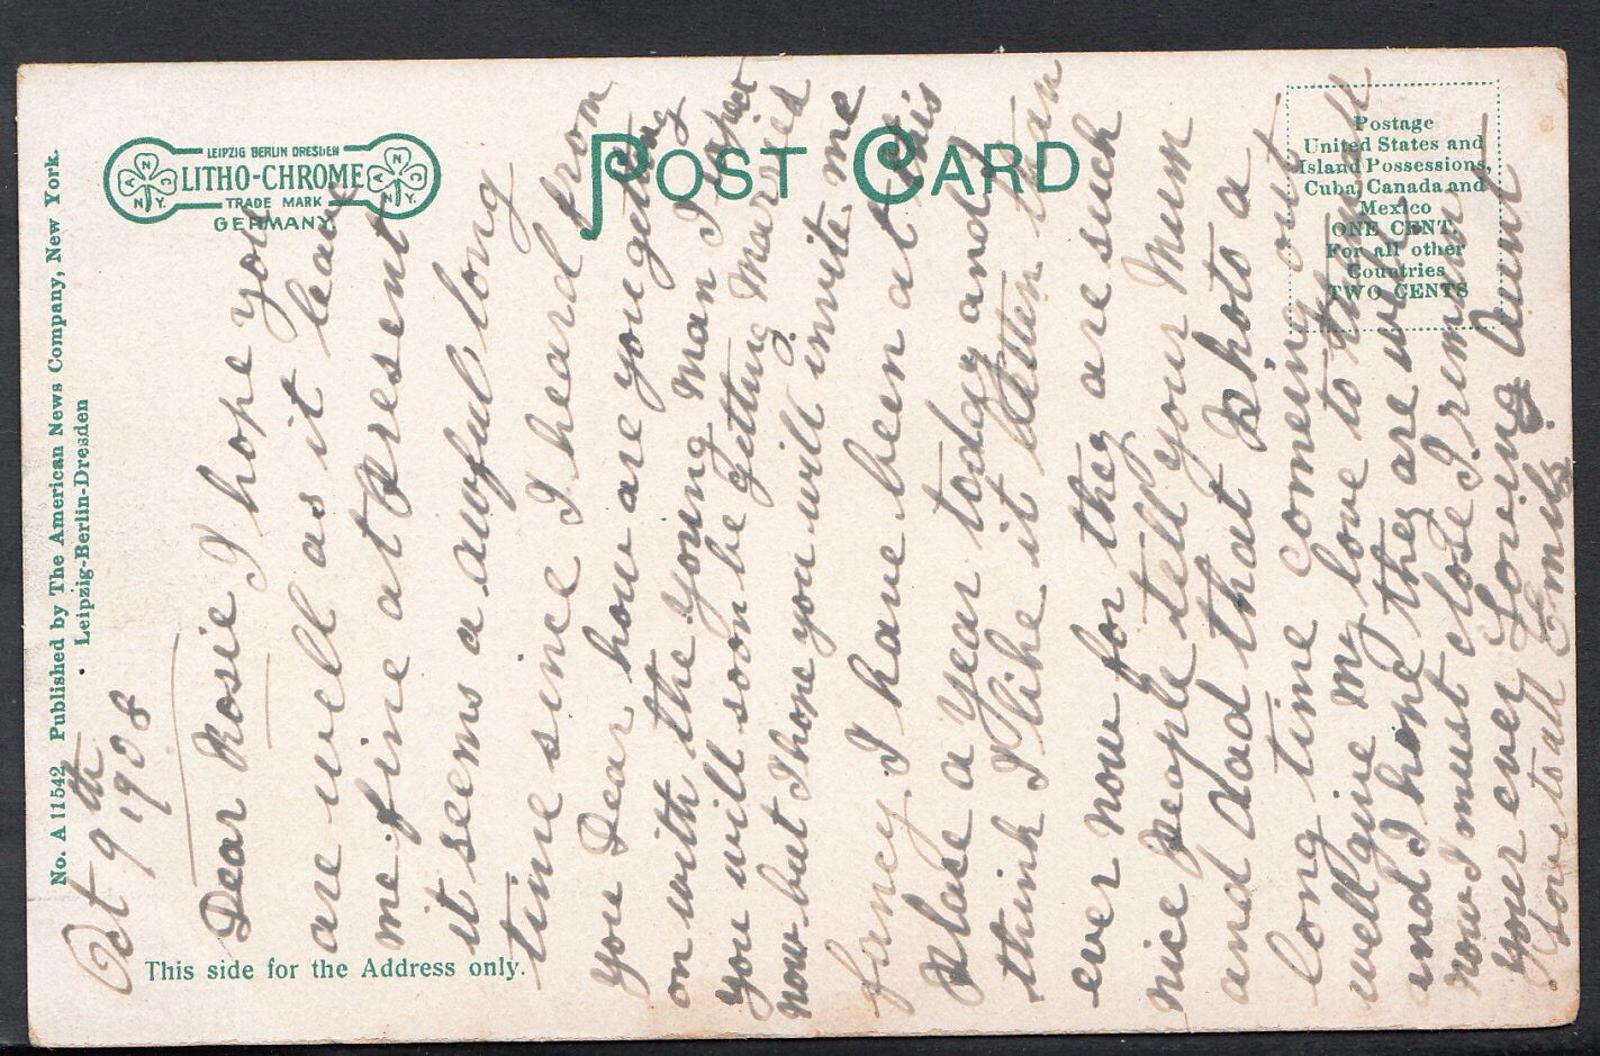 No. A 11542 Published by The American News Company, New York.
Leipzig-Berlin-Dresden
LEIPZIG BERLIN DRESDEN
LITHO-CHROME
TRADE MARK
GERMANY.
A N C N.Y.
A N C N.Y.
POST CARD
Postage
United States and
Island Possessions,
Cuba, Canada and
Mexico
ONE CENT.
For all other
Countries
TWO CENTS
This side for the Address only.
Oct 9th
1908
Dear Rosie I hope you
are well as it leave
me fine at Present
it seems a awful long
time since I heard from
you Dear how are you geting
on with the Young Man I expect
you will soon be getting Married
now but I hope you will invite me
fancy I have been at this
Place a year today and I
think I like it better than
ever now for they are such
nice People tell your Mum
and dad that Photo a
long time comeing out
well give my love to them all
and I hope they are well
now I must close I remain
your ever Loving Aunt
Love to all Emily